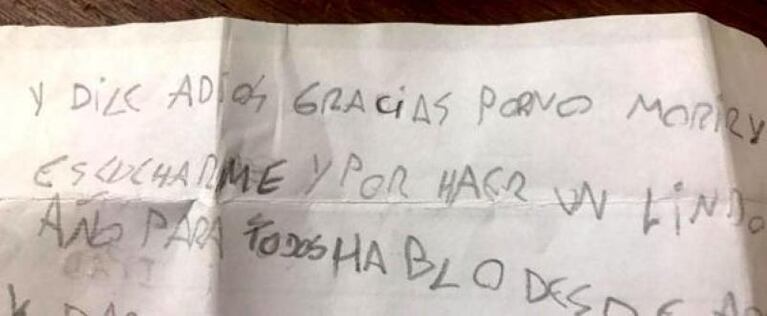 Y DiLE ADiOS GRACiAS PORNO MORIR Y
ESCUCHARME Y POR HACER UN LiNDO
AÑO PARA TODOS HABLO DESDE